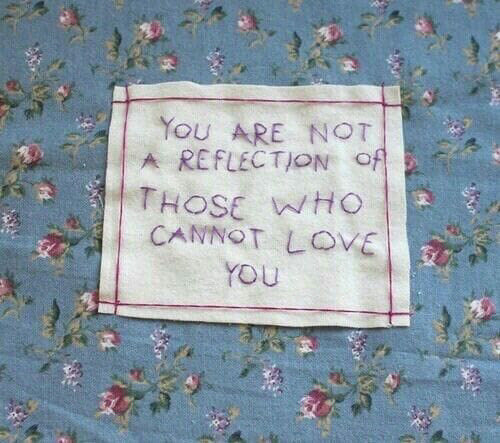 YOU ARE NOT
A REFLECTION Of
THOSE WHO
CANNOT LOVE
YOU